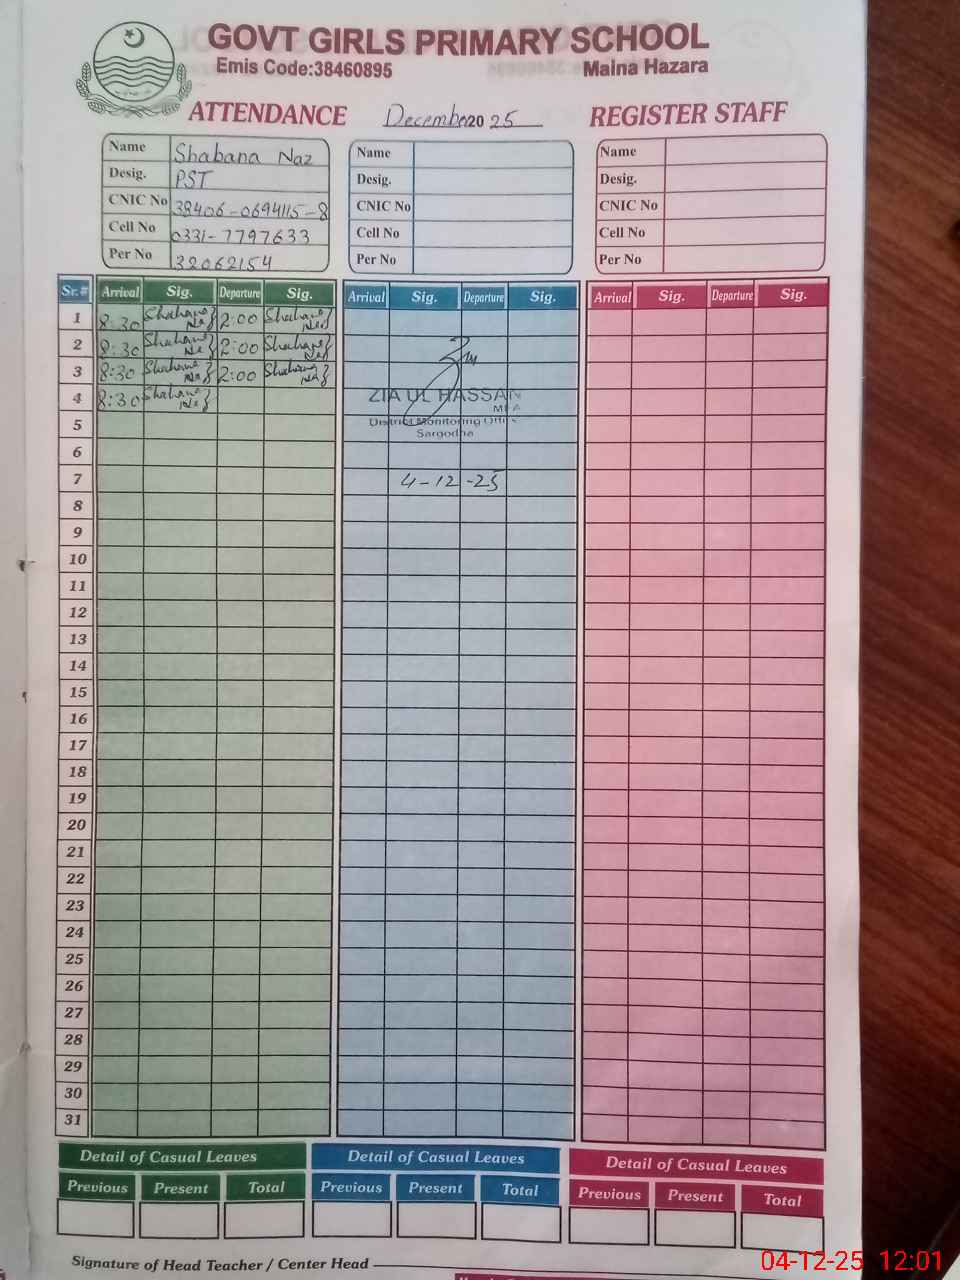 GOVT GIRLS PRIMARY SCHOOL
Emis Code:38460895 Maina Hazara
ATTENDANCE December 2025 REGISTER STAFF
Name Shabana Naz Name Name
Desig. PST Desig. Desig.
CNIC No 38406-0694115-8 CNIC No CNIC No
Cell No 0331-7797633 Cell No Cell No
Per No 32062154 Per No Per No
Sr.# Arrival Sig. Departure Sig. Arrival Sig. Departure Sig. Arrival Sig. Departure Sig.
1 8:30 Shabana Naz 2:00 Shabana Naz
2 8:30 Shabana Naz 2:00 Shabana Naz
3 8:30 Shabana Naz 2:00 Shabana Naz
4 8:30 Shabana Naz ZIA UL HASSAN
MEA
5 District Monitoring Office
Sargodha
6
7 4-12-25
8
9
10
11
12
13
14
15
16
17
18
19
20
21
22
23
24
25
26
27
28
29
30
31
Detail of Casual Leaves Detail of Casual Leaves Detail of Casual Leaves
Previous Present Total Previous Present Total Previous Present Total
Signature of Head Teacher / Center Head
04-12-25 12:01